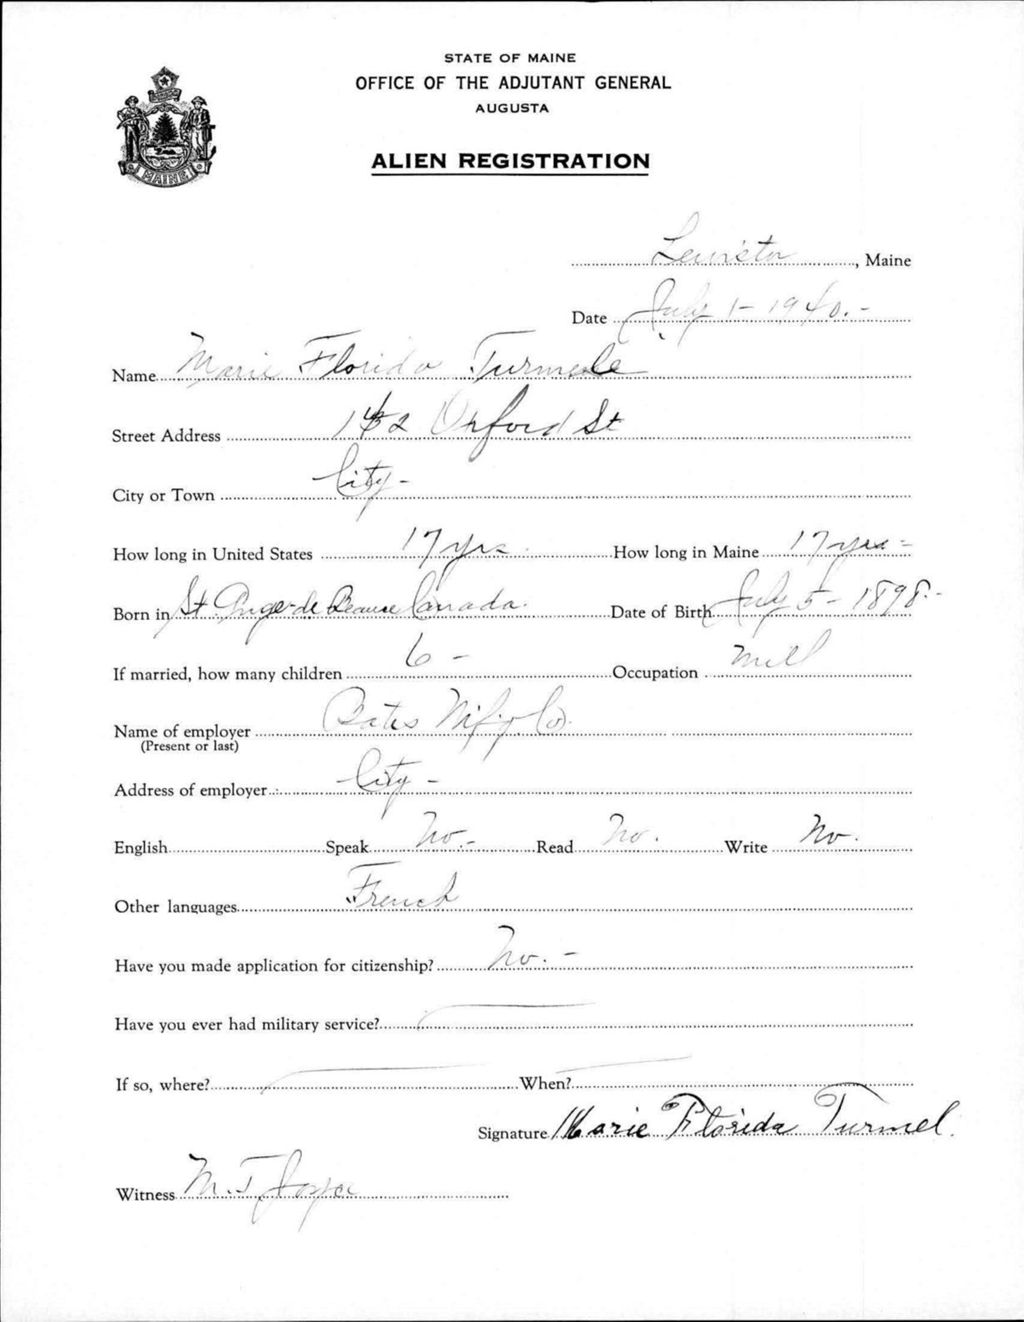 STATE OF MAINE
OFFICE OF THE ADJUTANT GENERAL
AUGUSTA
ALIEN REGISTRATION
MAINE
Lewiston, Maine
Date July 1- 1940.-
Name Marie Florida Turmele
Street Address Oxford St
City or Town City-
How long in United States 17 yrs How long in Maine 17 yrs-
Born in St de Beauce Canada. Date of Birth July 5- 1898.-
If married, how many children 6 - Occupation Mill
Name of employer Bates Mfg. Co.
(Present or last)
Address of employer City-
English Speak No.- Read No. Write No.
Other languages French
Have you made application for citizenship? No.-
Have you ever had military service?
If so, where? When?
Signature Marie Florida Turmel.
Witness M.T Joyce